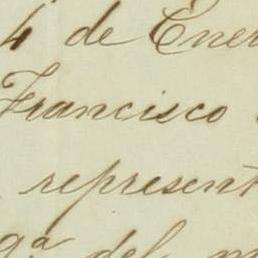 4 de Ener
Francisco
represent
g.ª del m